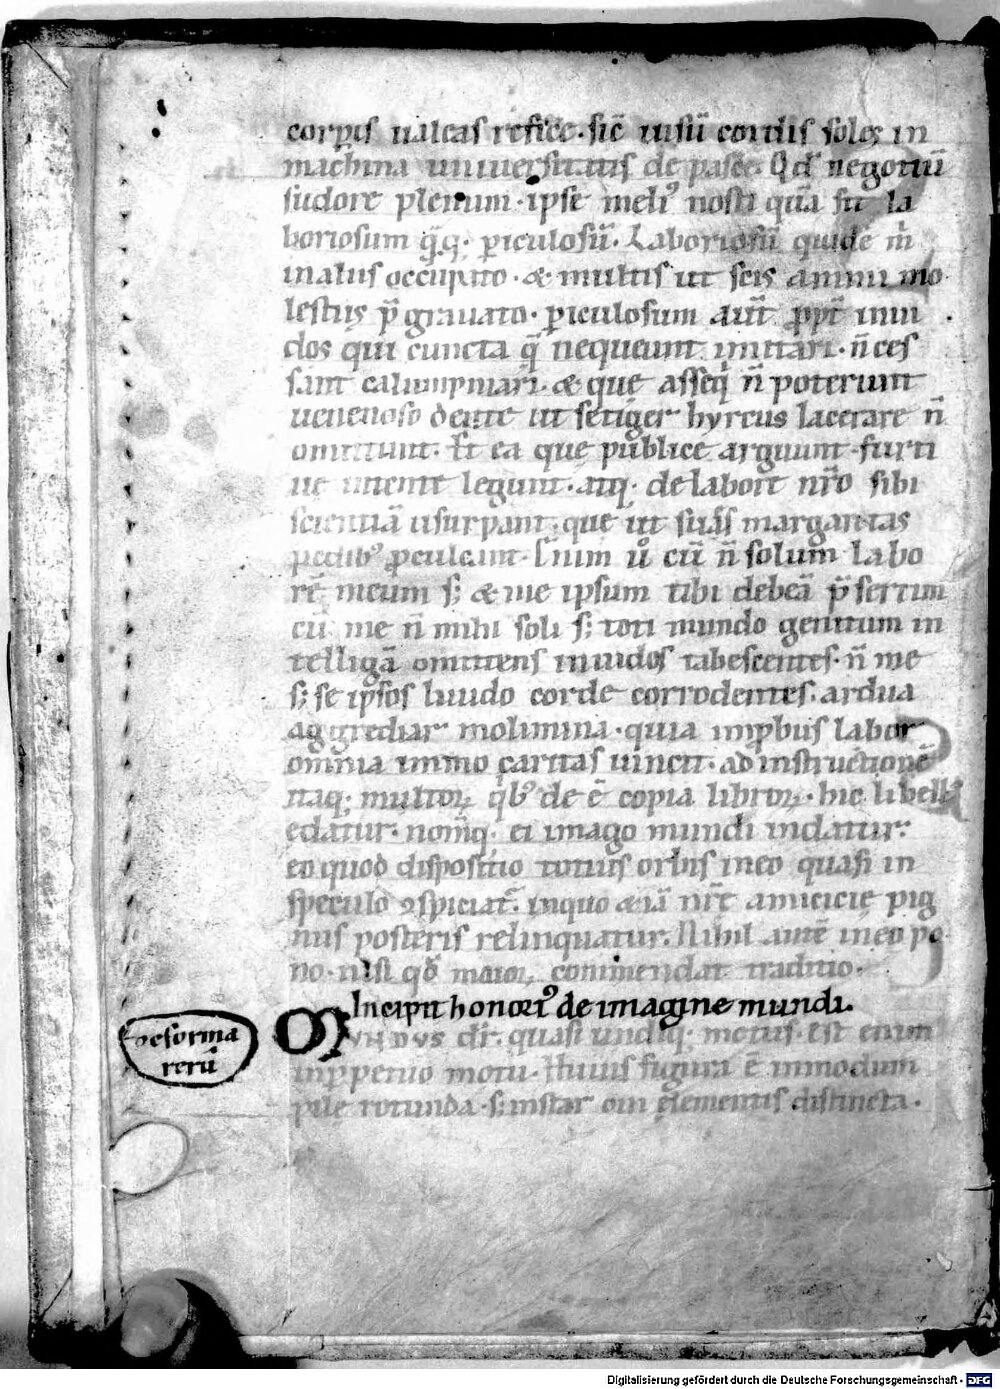 corpis ualeas reficē · sīc uisū cordis soleꝫ in
machina uniuersitatis de pascē · Qđ negotiū
sudore plenum · ipse meli᾿ nosti quā sīt la
boriosum q̄.q; ꝑiculosū · Laboriosū quidē m̄
in aliis occupato · & multis ut scis animi mo
lestiis p̄ grauato · ꝑiculosum aūt ꝓpt̄ inui
dos qui cuncta q̄ nequeunt imitari · n̄ ces
sant calumpniari · & que asseq̄ n̄ poterunt
uenenoso dente ut setiger hyrcus lacerare n̄
omittunt · Et ea que publice arguunt · furti
ue legunt · atq; de labore nr̄o sibi
scientiā usurpant · que ut suas margaritas
pedib᾿ ꝓculcant · Enim ů cū n̄ solum labo
rē meum s; & me ipsum tibi debeā p̄sertim
cū me n̄ mihi soli s; toti mundo genitum in
telligā omittens inuidos tabescentes · n̄ me
s; se ipsos liuido corde corrodentes · ardua
aggrediar molimina · quia imꝓbus labor
omnia immo caritas uincit · ad instructionē
itaq; multoꝝ qib᾿ de ē copia libroꝝ · hic libell᾿
edatur · nomq; ei imago mundi indatur ·
eo quod dispositio totius orbis in eo quasi in
speculo ꝯspiciat᾿ · in quo & iā nr̄e amicicię pig
nus posteris relinquatur · Nihil autē in eo po
no · nisi qđ maioꝝ commendat traditio ·
Incipit honorī᾿ de imagine mundi.
MUNDUS dr̄ · quasi undiq; motus · est enim
in ꝑpetuo motu · Huius figura ē in modum
pilę rotunda · s; instar oui elementis distincta ·
De forma
rerū
Digitalisierung gefördert durch die Deutsche Forschungsgemeinschaft - DFG